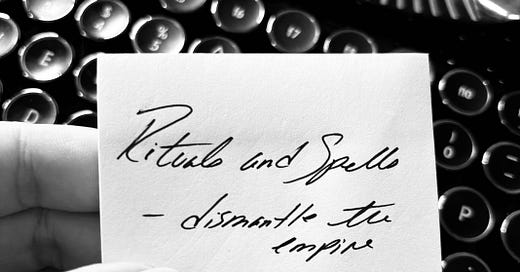 Rituals and Spells
- dismantle the
empire